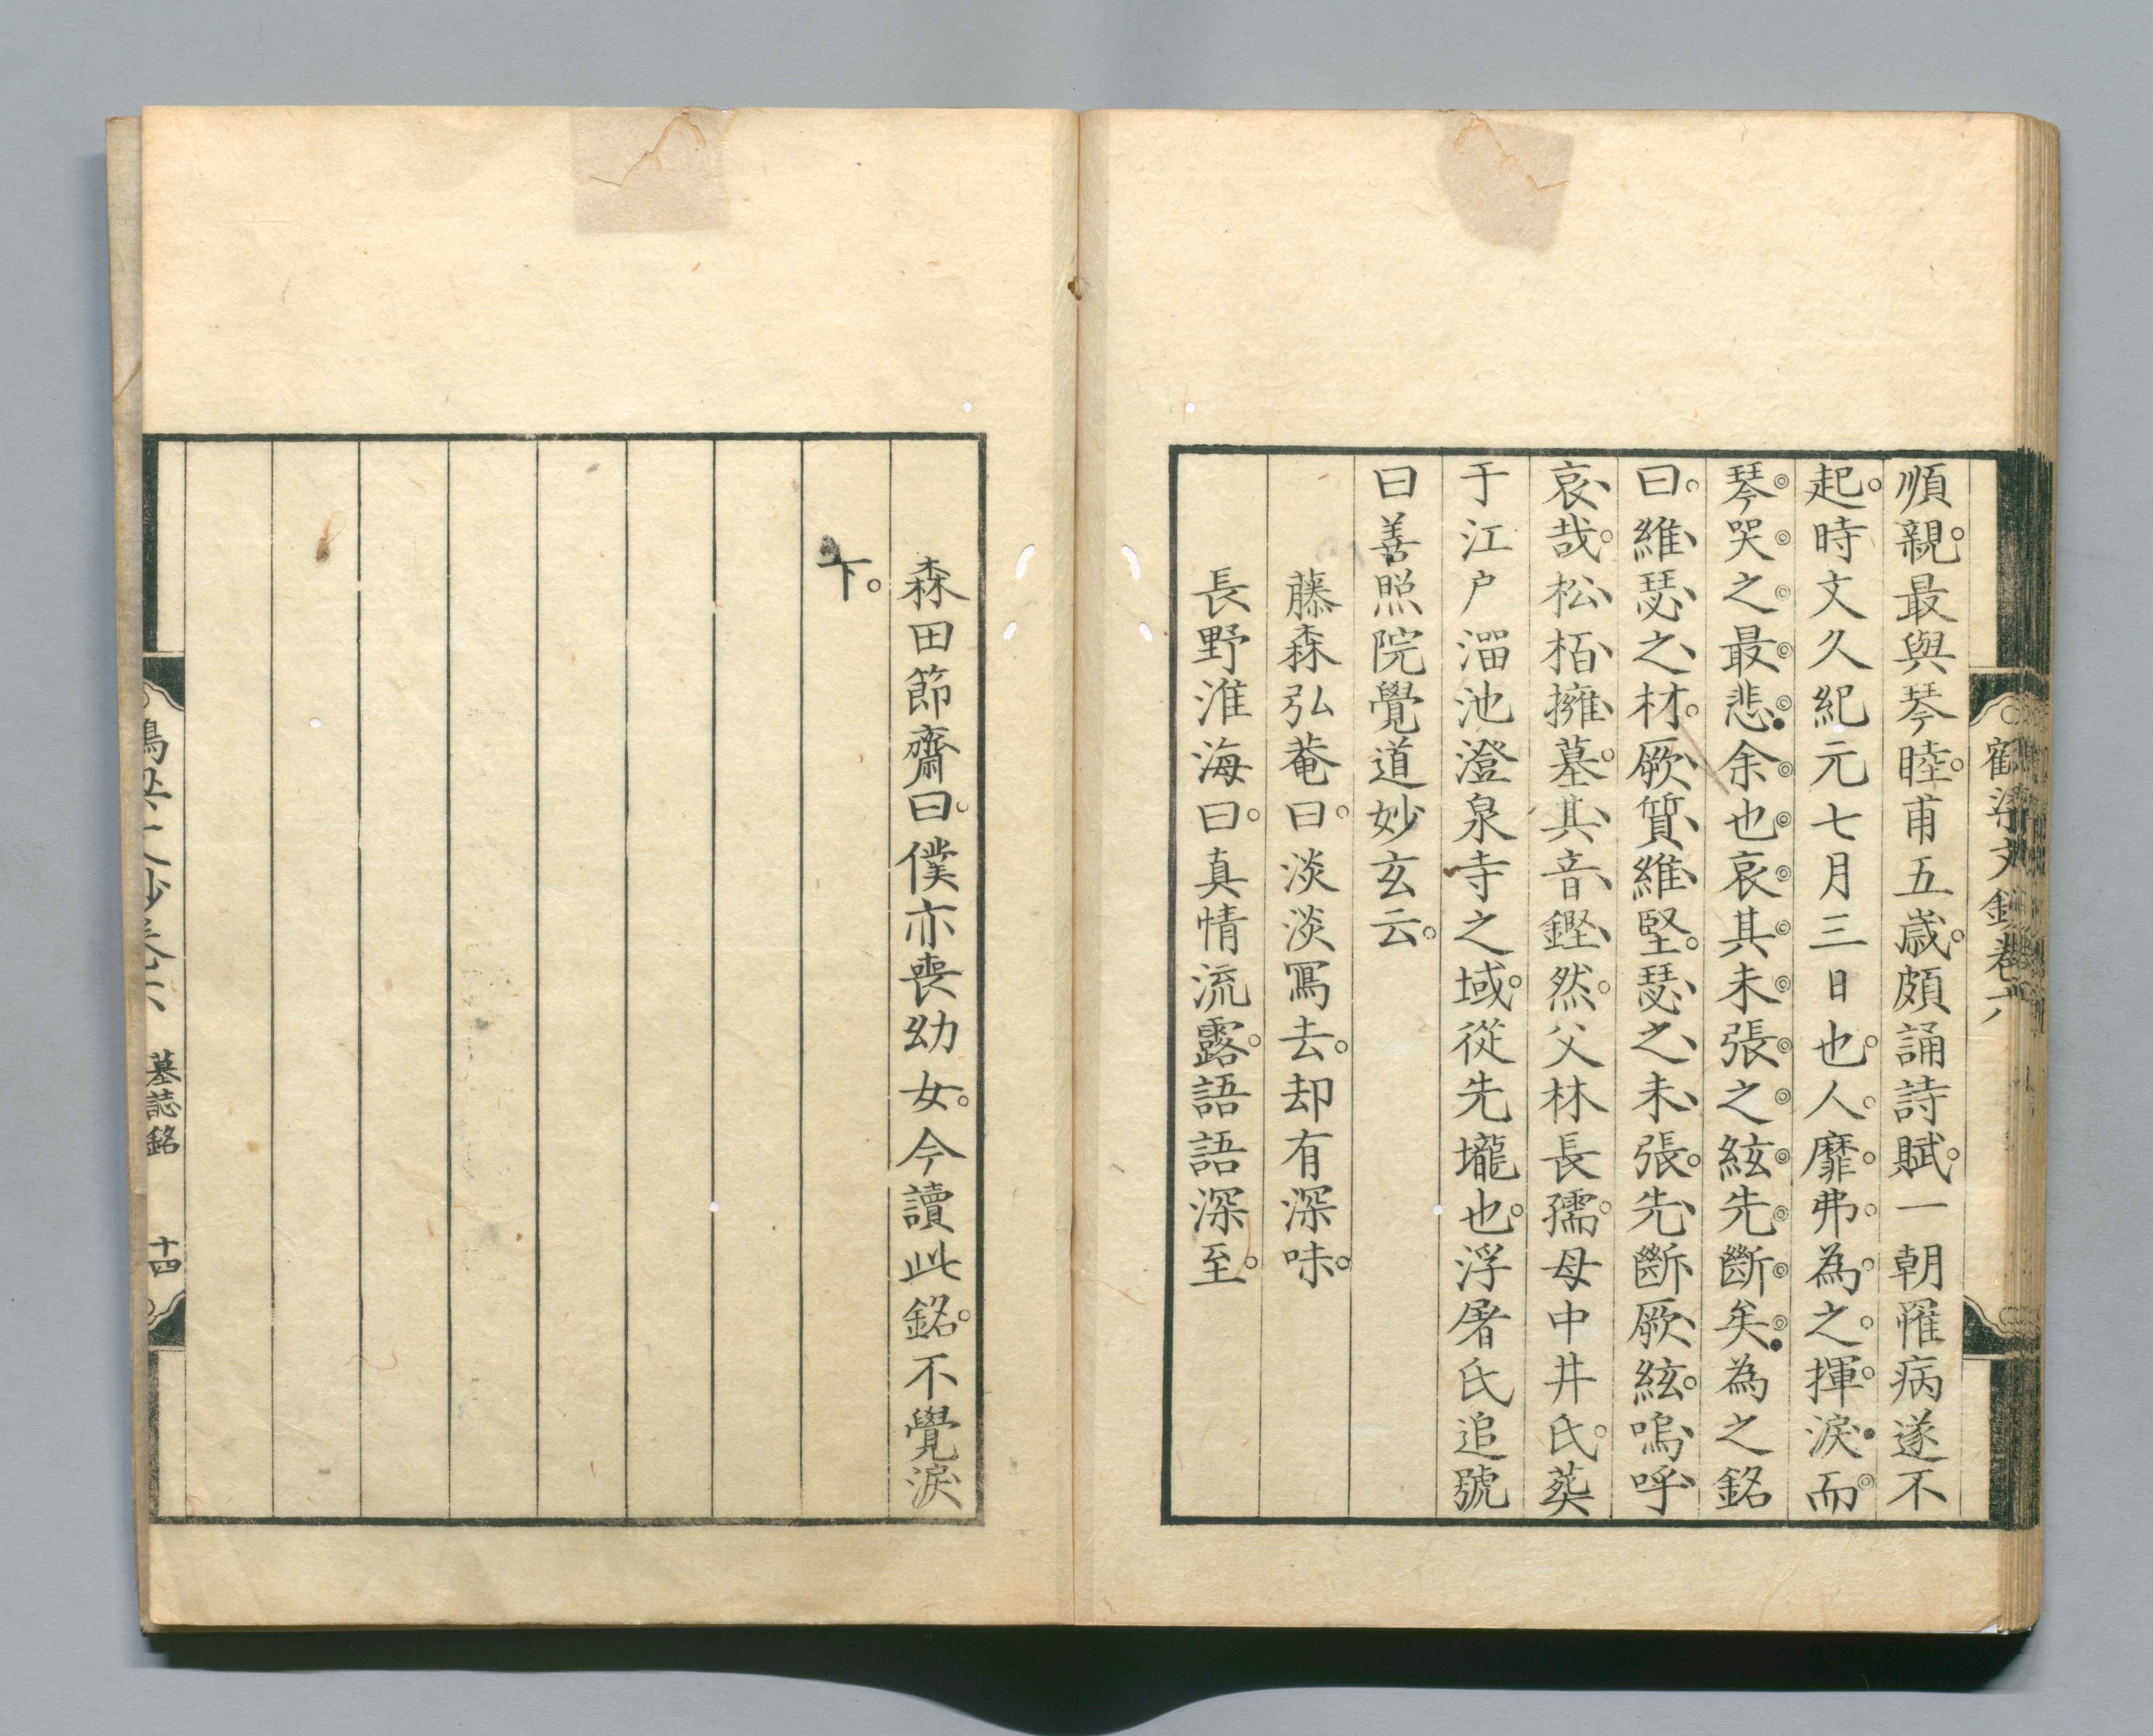 順親。最與琴睦。甫五歳。頗誦詩賦。一朝罹病遂不
起。時文久紀元七月三日也。人靡弗為之揮淚而
琴哭之最悲余也哀其未張之絃先斷矣為之銘
曰。維瑟之材。厥質維堅。瑟之未張。先斷厥絃。嗚呼
哀哉。松栢擁墓。其音鏗然。父林長孺。母中井氏。葬
于江戸溜池澄泉寺之域。從先壠也。浮屠氏追號
曰善照院覺道妙玄云。
藤森弘菴曰。淡淡寫去。却有深味。
長野淮海曰。真情流露。語語深至。
森田節齋曰。僕亦喪幼女。今讀此銘。不覺淚
下。
墓誌銘
十四